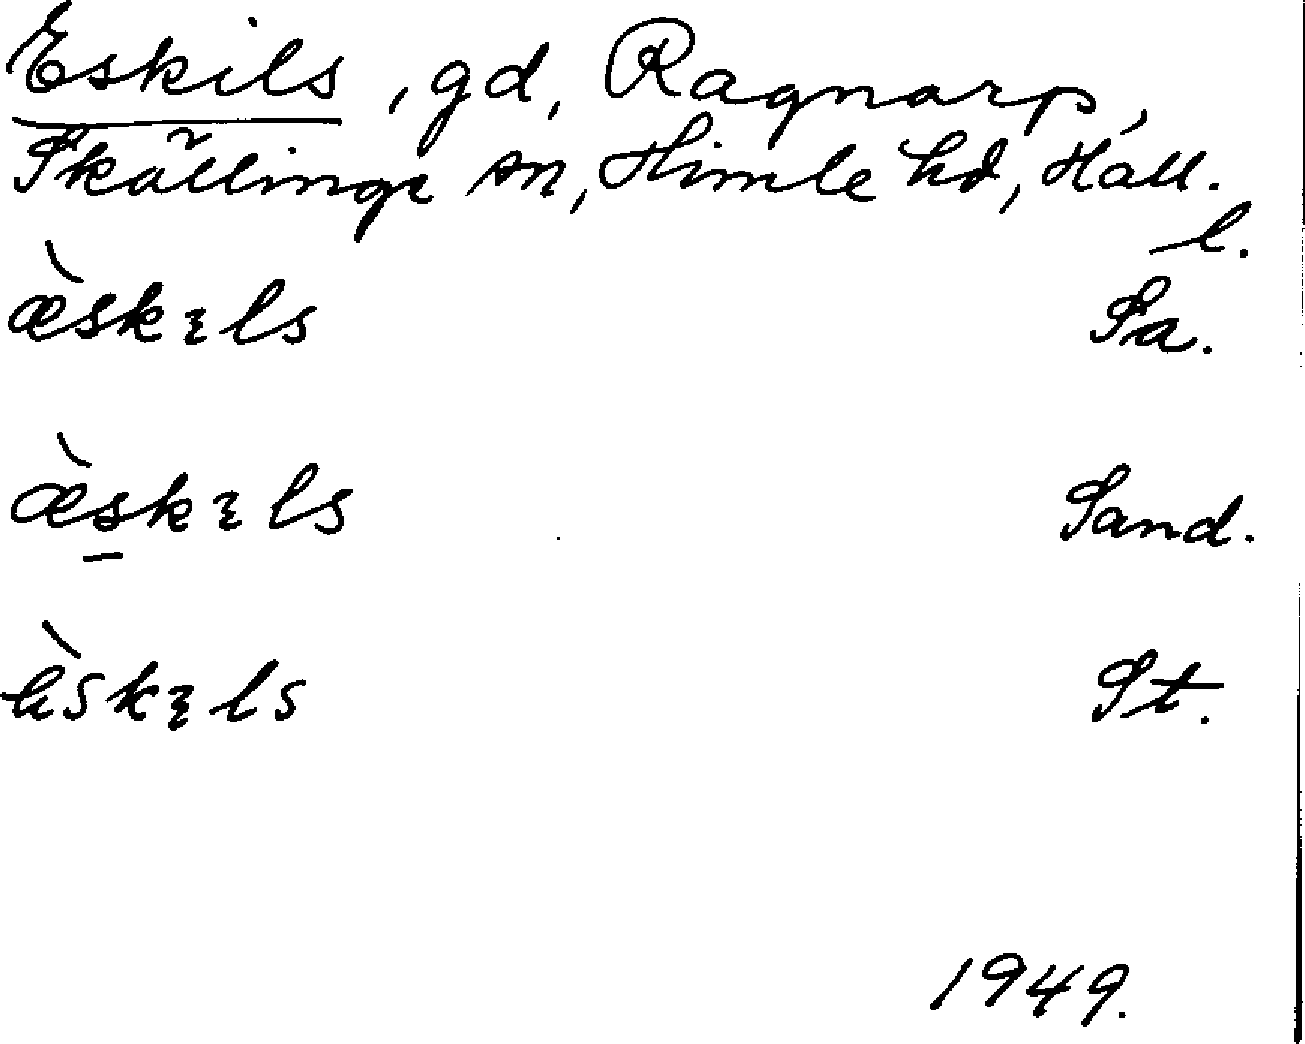 Eskils, gd, Ragnarp,
Skällinge sn, Himle hd, Hall.
l.
æ̀skɪls Sa.
æ̀skɪls Sand.
ɛ̀skɪls St.
1949.